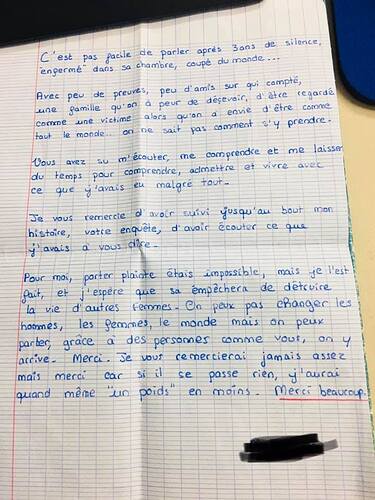 C'est pas facile de parler après 3ans de silence,
enfermé dans sa chambre, coupé du monde...
Avec peu de preuves, peu d'amis sur qui compté,
une famille qu'on à peur de deçevoir, d'être regardé
comme une victime alors qu'on a envie d'être comme
tout le monde.. on ne sait pas comment s'y prendre.
Vous avez su m'écouter, me comprendre et me laisser
du temps pour comprendre, admettre et vivre avec
ce que j'avais eu malgré tout.
Je vous remercie d'avoir suivi jusqu'au bout mon
histoire, votre enquête, d'avoir écouter ce que
j'avais à vous dire.
Pour moi, porter plainte étais impossible, mais je l'est
fait, et j'espère que sa empêchera de détruire
la vie d'autres femmes. On peux pas changer les
hommes, les femmes, le monde mais on peux
parler, grâce à des personnes comme vous, on y
arrive. Merci. Je vous remercierai jamais assez
mais merci car si il se passe rien, j'aurai
quand même "un poids" en moins. Merci beaucoup.